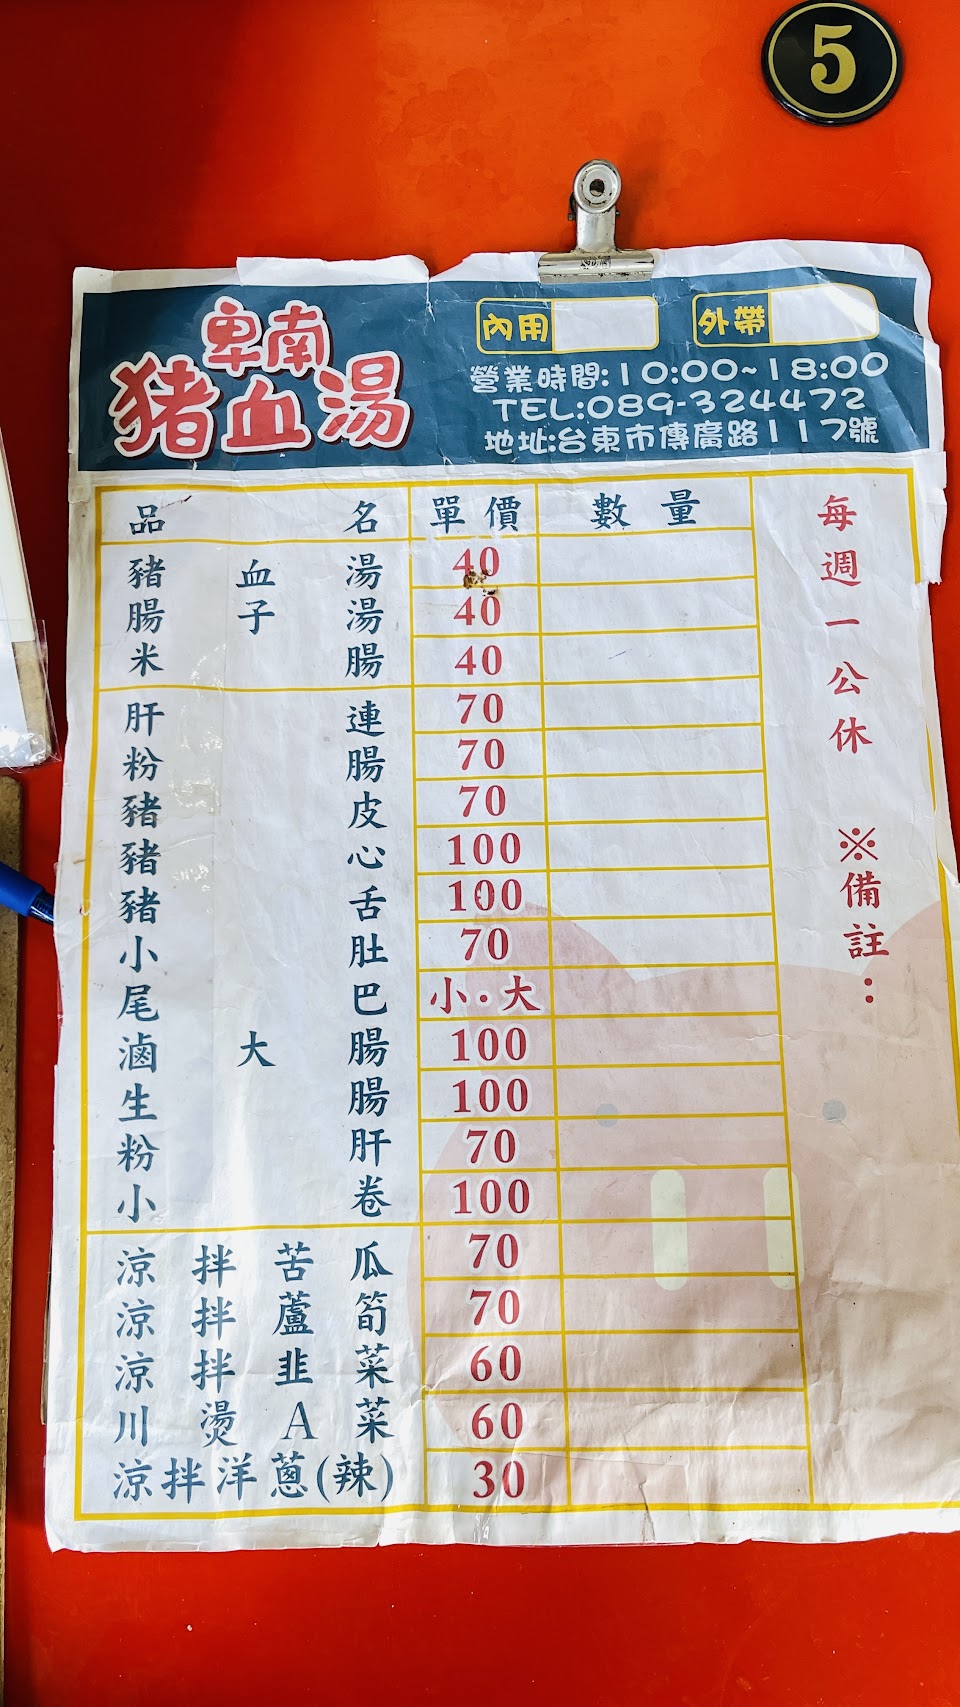 5
卑南
豬血湯
內用
外帶
營業時間:10:00~18:00
TEL:089-324472
地址:台東市傳廣路117號
品名 單價 數量
豬血湯 40
腸子湯 40
米腸 40
肝連 70
粉腸 70
豬皮 70
豬心 100
豬舌 100
小肚 70
尾巴 小·大
滷大腸 100
生腸 100
粉肝 70
小卷 100
涼拌苦瓜 70
涼拌蘆筍 70
涼拌韭菜 60
川燙A菜 60
涼拌洋蔥(辣) 30
每週一公休 ※備註：